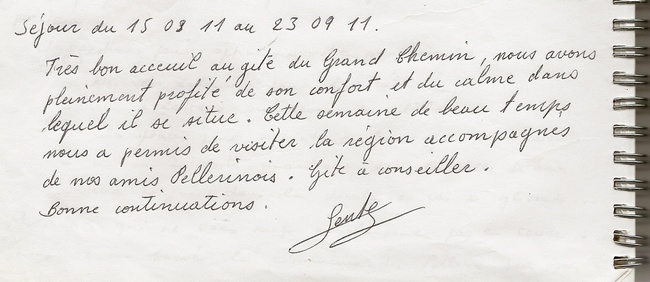 Séjour du 15 09 11 au 23 09 11.
Très bon acceuil au gite du Grand Chemin, nous avons
pleinement profité de son confort et du calme dans
lequel il se situe. Cette semaine de beau temps
nous a permis de visiter la région accompagnés
de nos amis Pellerinois. Gite a conseiller.
Bonne continuations.